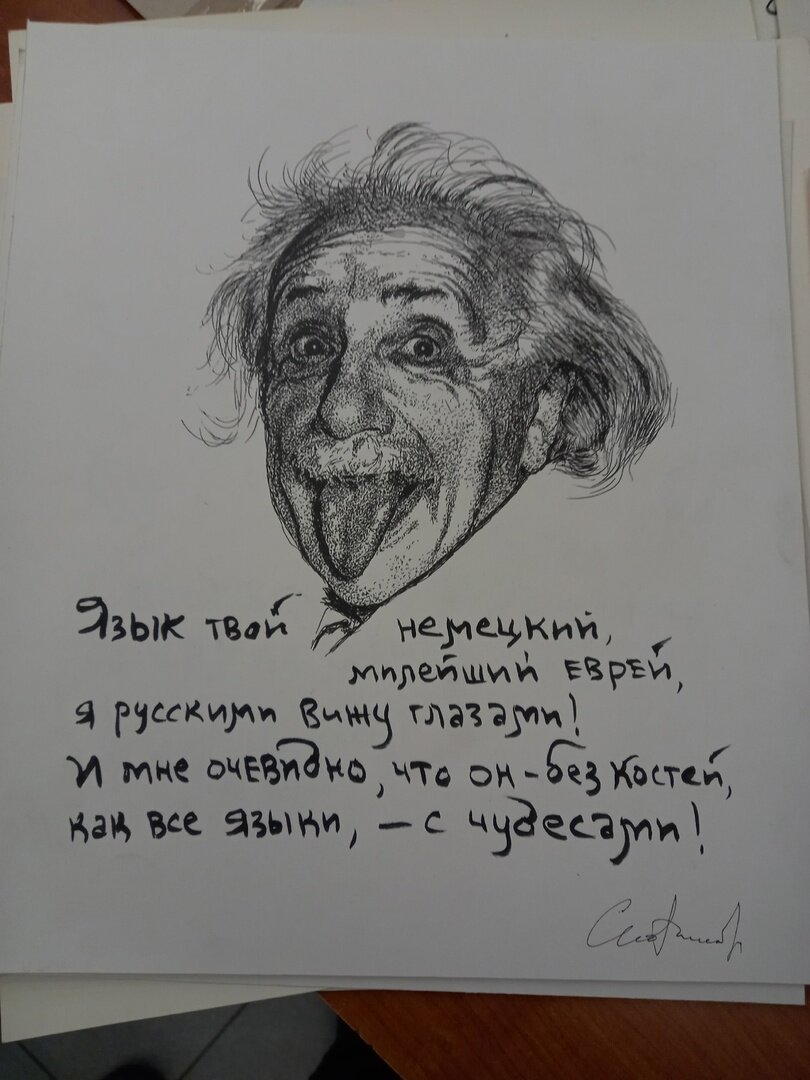 Язык твой немецкий,
милейший еврей,
я русскими вижу глазами!
И мне очевидно, что он – без костей,
как все языки, – с чудесами!